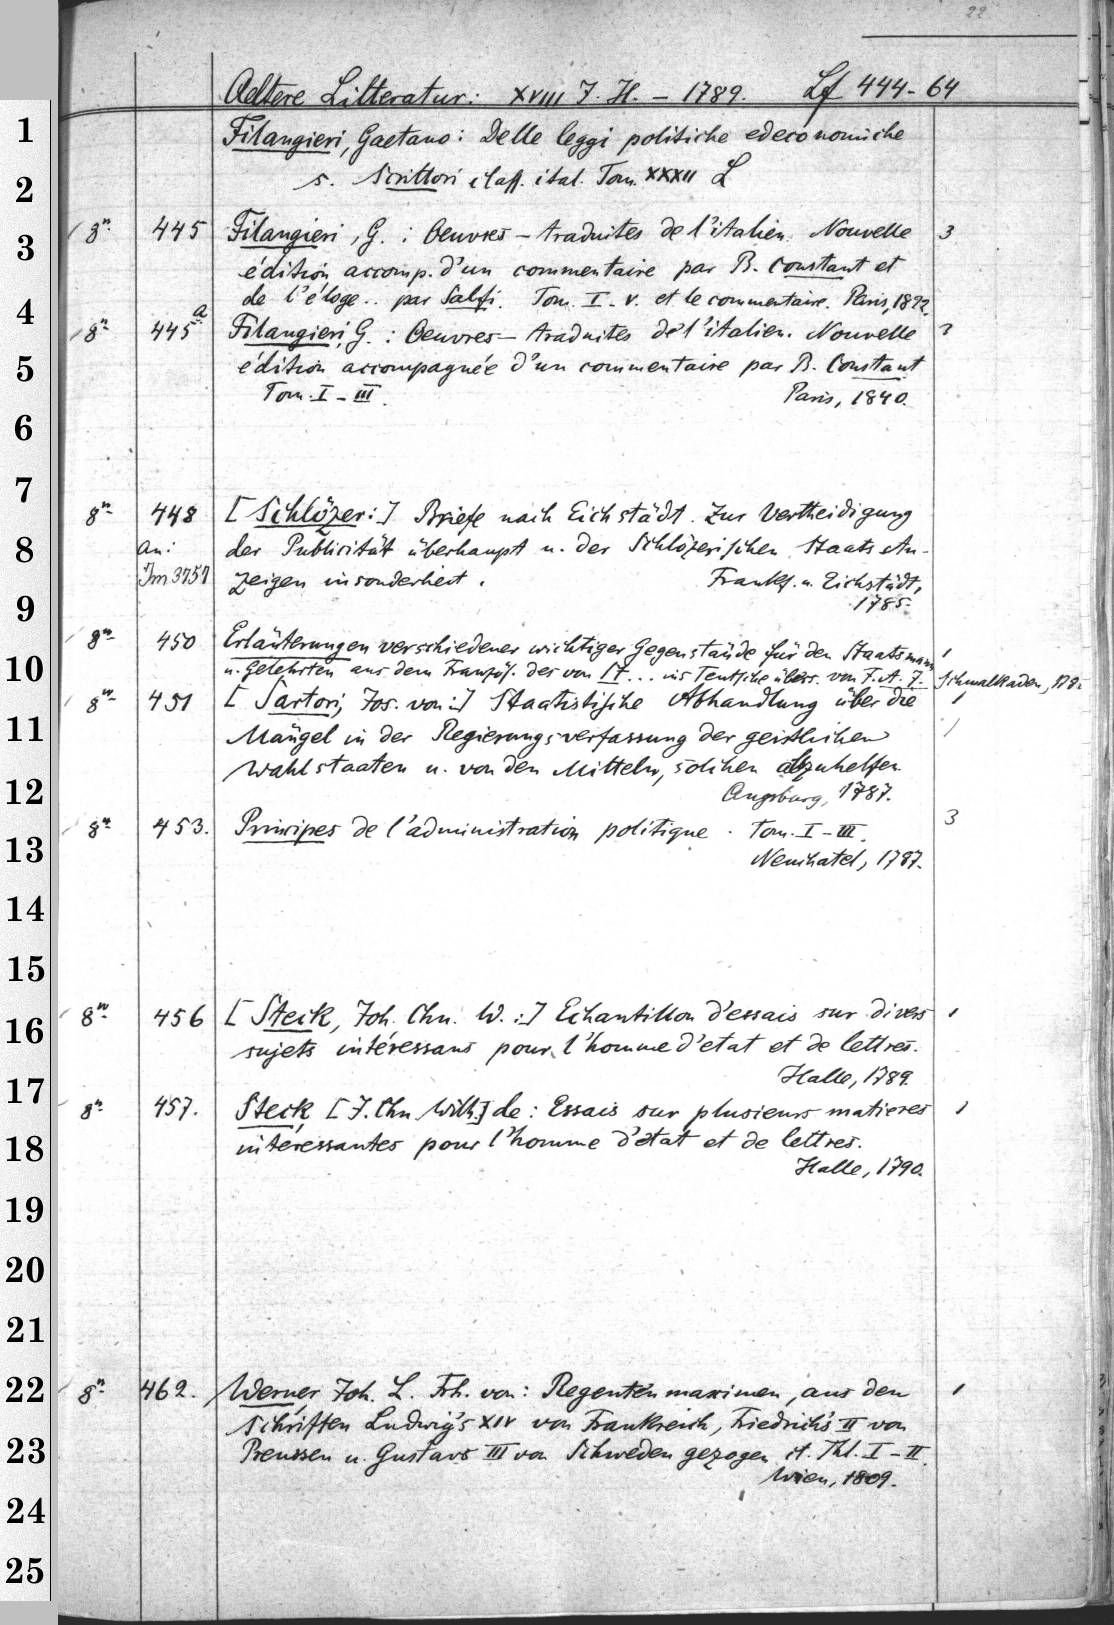 22
Aeltere Litteratur: XVIII J. H. - 1789. Lf 444-64
1
Filangieri, Gaetano: Delle leggi politiche ed economiche
2
s. Scrittori class. ital. Tom. XXXII L
3
8º 445 Filangieri, G.: Oeuvres - traduites de l'italien. Nouvelle 3
édition accomp. d'un commentaire par B. Constant et
4
de l'éloge.. par Salfi. Tom. I-V. et le commentaire. Paris, 1822.
8º 445a Filangieri, G.: Oeuvres - traduites de l'italien. Nouvelle
5
édition accompagnée d'un commentaire par B. Constant
Tom. I-III. Paris, 1840.
6
7
8º 448 [Schlözer:] Briefe nach Eichstädt. Zur Vertheidigung
8
an: der Publicität überhaupt u. der Schlözerischen Staats An-
Im 3757 zeigen insonderheit. Frankf. u. Eichstädt,
9
1785.
8º 450 Erläuterungen verschiedener wichtiger Gegenstände für den Staatsmann 1
10
u. Gelehrten aus dem Französ. des von St... ins Teutsche übers. von F. A. J. Schmalkaden,
8º 451 [Sartori, Jos. von:] Staatistische Abhandlung über die 1
11
Mängel in der Regierungsverfassung der geistlichen 1
Wahlstaaten u. von den Mitteln, solchen abzuhelfen.
12
Augsburg, 1787.
8º 453. Principes de l'administration politique. Tom. I-III. 3
13
Neuchatel, 1787.
14
15
8º 456 [Steck, Joh. Chn. W.:] Echantillon d'essais sur divers 1
16
sujets intéressans pour l'homme d'etat et de lettres.
Halle, 1789.
17
8º 457. Steck, [J. Chn. Wilh.] de: Essais sur plusieurs matieres 1
18
intéressantes pour l'homme d'état et de lettres.
Halle, 1790.
19
20
21
22
8º 462. Werner, Joh. L. Frh. von: Regentenmaximen, aus den 1
Schriften Ludwig's XIV von Frankreich, Friedrich's II von
23
Preussen u. Gustavs III von Schweden gezogen etc. Thl. I-II.
Wien, 1809.
24
25